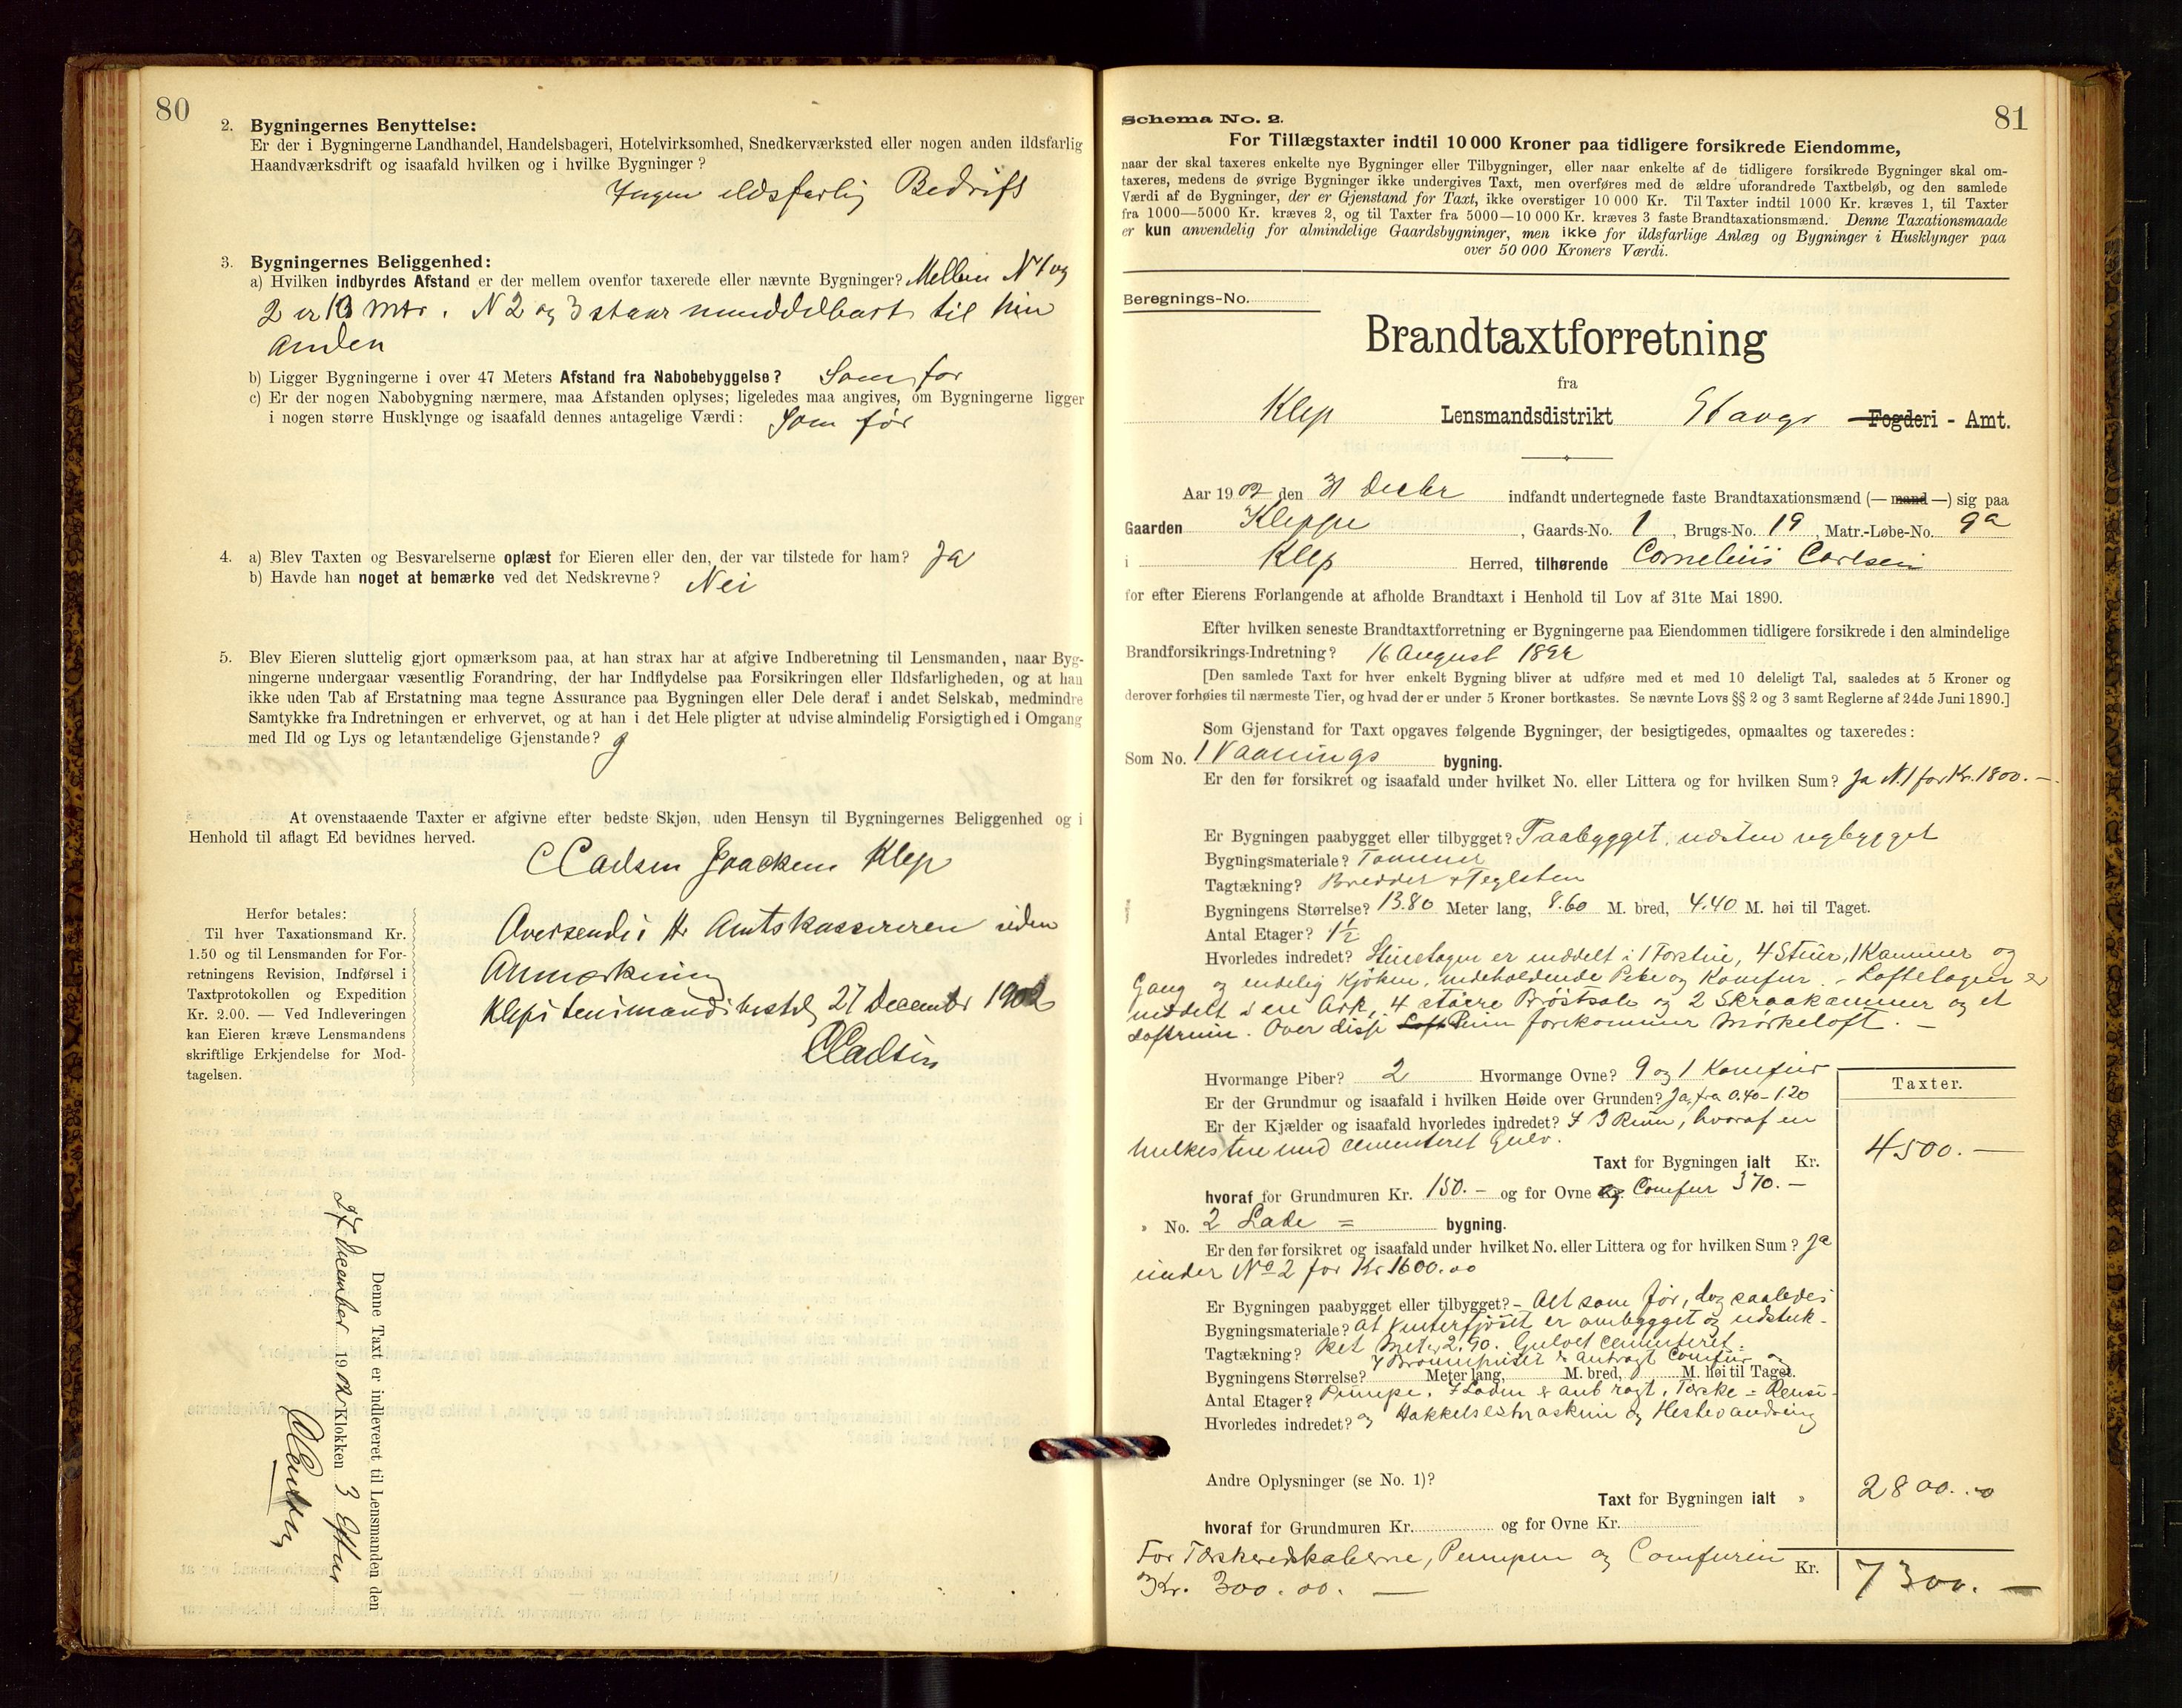 80
2. Bygningernes Benyttelse:
Er der i Bygningerne Landhandel, Handelsbageri, Hotelvirksomhed, Snedkerværksted eller nogen anden ildsfarlig
Haandværksdrift og isaafald hvilken og i hvilke Bygninger?
Ingen ildsfarlig Bedrift
3. Bygningernes Beliggenhed:
a) Hvilken indbyrdes Afstand er der mellem ovenfor taxerede eller nævnte Bygninger? Mellem N 1 og
2 er 13 Mtr. N 2 og 3 staar umiddelbart til hin
anden
b) Ligger Bygningerne i over 47 Meters Afstand fra Nabobebyggelse? Som før
c) Er der nogen Nabobygning nærmere, maa Afstanden oplyses; ligeledes maa angives, om Bygningerne ligger
i nogen større Husklynge og isaafald dennes antagelige Værdi: Som før
4. a) Blev Taxten og Besvarelserne oplæst for Eieren eller den, der var tilstede for ham? Ja
b) Havde han noget at bemærke ved det Nedskrevne? Nei
5. Blev Eieren sluttelig gjort opmærksom paa, at han strax har at afgive Indberetning til Lensmanden, naar Byg-
ningerne undergaar væsentlig Forandring, der har Indflydelse paa Forsikringen eller Ildsfarligheden, og at han
ikke uden Tab af Erstatning maa tegne Assurance paa Bygningen eller Dele deraf i andet Selskab, medmindre
Samtykke fra Indretningen er erhvervet, og at han i det Hele pligter at udvise almindelig Forsigtighed i Omgang
med Ild og Lys og letantændelige Gjenstande?
At ovenstaaende Taxter er afgivne efter bedste Skjøn, uden Hensyn til Bygningernes Beliggenhed og i
Henhold til aflagt Ed bevidnes herved.
C Carlsen Joackem Klep
Herfor betales:
Til hver Taxationsmand Kr.
1.50 og til Lensmanden for For-
retningens Revision, Indførsel i
Taxtprotokollen og Expedition
Kr. 2.00. — Ved Indleveringen
kan Eieren kræve Lensmandens
skriftlige Erkjendelse for Mod-
tagelsen.
Oversendes Hr Amtskassereren uden
Anmerkning
Klep Lensmandsbestil 27 December 1902
Denne Taxt er indleveret til Lensmanden den
27 December 1902 Klokken 3 Efterm
81
Schema No. 2.
For Tillægstaxter indtil 10 000 Kroner paa tidligere forsikrede Eiendomme,
naar der skal taxeres enkelte nye Bygninger eller Tilbygninger, eller naar enkelte af de tidligere forsikrede Bygninger skal om-
taxeres, medens de øvrige Bygninger ikke undergives Taxt, men overføres med de ældre uforandrede Taxtbeløb, og den samlede
Værdi af de Bygninger, der er Gjenstand for Taxt, ikke overstiger 10 000 Kr. Til Taxter indtil 1000 Kr. kræves 1, til Taxter
fra 1000—5000 Kr. kræves 2, og til Taxter fra 5000—10 000 Kr. kræves 3 faste Brandtaxationsmænd. Denne Taxationsmaade
er kun anvendelig for almindelige Gaardsbygninger, men ikke for ildsfarlige Anlæg og Bygninger i Husklynger paa
over 50 000 Kroners Værdi.
Beregnings-No.
Brandtaxtforretning
fra
Klep Lensmandsdistrikt Stavgr Fogderi - Amt.
Aar 1902 den 31 Decbr indfandt undertegnede faste Brandtaxationsmænd (— mand —) sig paa
Gaarden Kleppe, Gaards-No. 1, Brugs-No. 19, Matr.-Løbe-No. 9a
i Klep Herred, tilhørende Cornelius Carlsen
for efter Eierens Forlangende at afholde Brandtaxt i Henhold til Lov af 31te Mai 1890.
Efter hvilken seneste Brandtaxtforretning er Bygningerne paa Eiendommen tidligere forsikrede i den almindelige
Brandforsikrings-Indretning? 16 August 1892
[Den samlede Taxt for hver enkelt Bygning bliver at udføre med et med 10 deleligt Tal, saaledes at 5 Kroner og
derover forhøies til nærmeste Tier, og hvad der er under 5 Kroner bortkastes. Se nævnte Lovs §§ 2 og 3 samt Reglerne af 24de Juni 1890.]
Som Gjenstand for Taxt opgaves følgende Bygninger, der besigtigedes, opmaaltes og taxeredes:
Som No. 1 Vaanings bygning.
Er den før forsikret og isaafald under hvilket No. eller Littera og for hvilken Sum? Ja N. 1 for Kr. 1800. —
Er Bygningen paabygget eller tilbygget? Paabygget, næsten nybygget
Bygningsmateriale? Tømmer
Tagtækning? Bredder & Teglsten
Bygningens Størrelse? 13.80 Meter lang, 8.60 M. bred, 4.40 M. høi til Taget.
Antal Etager? 1½
Hvorledes indredet? Stueetagen er inddelt i 1 Forstue, 4 Stuer, 1 Kammer og
Gang og endelig Kjøken, indeholdende Peis og Komfur. - Loftetagen er
inddelt i en Ark, 4 større Brøstsale og 2 Skraakammer og et
Loftrum. Over disse Loft Rum forekommer Mørkeloft. —
Hvormange Piber? 2 Hvormange Ovne? 9 og 1 Komfur
Er der Grundmur og isaafald i hvilken Høide over Grunden? Ja, fra 0.40-1.20
Er der Kjælder og isaafald hvorledes indredet? I 3 Rum, hvoraf en
Melkestue med cementeret Gulv.
Taxter.
Taxt for Bygningen ialt Kr. 4500. —
hvoraf for Grundmuren Kr. 150. — og for Ovne og Comfur 370. —
» No. 2 Lade = bygning.
Er den før forsikret og isaafald under hvilket No. eller Littera og for hvilken Sum? Ja
under No 2 for Kr 1600.00
Er Bygningen paabygget eller tilbygget? - Alt som før, dog saaledes
Bygningsmateriale? at Vinterfjøset er ombygget og udstuk-
Tagtækning? ket Meter 2.90. Gulvet cementeret.
I Brønhuset er anbragt Comfur og
Bygningens Størrelse? Meter lang, M. bred, M. høi til Taget.
Antal Etager? Pumpe. I Laden er anbragt, Tærske = Rense-
Hvorledes indredet? og Hakkelsesmaskin og Hestevandring
Andre Oplysninger (se No. 1)?
Taxt for Bygningen ialt » 2800.00
hvoraf for Grundmuren Kr. og for Ovne Kr.
For Tærskeredskaberne, Pumpen og Comfuren
Kr. 300.00. —
Kr. 7300. —